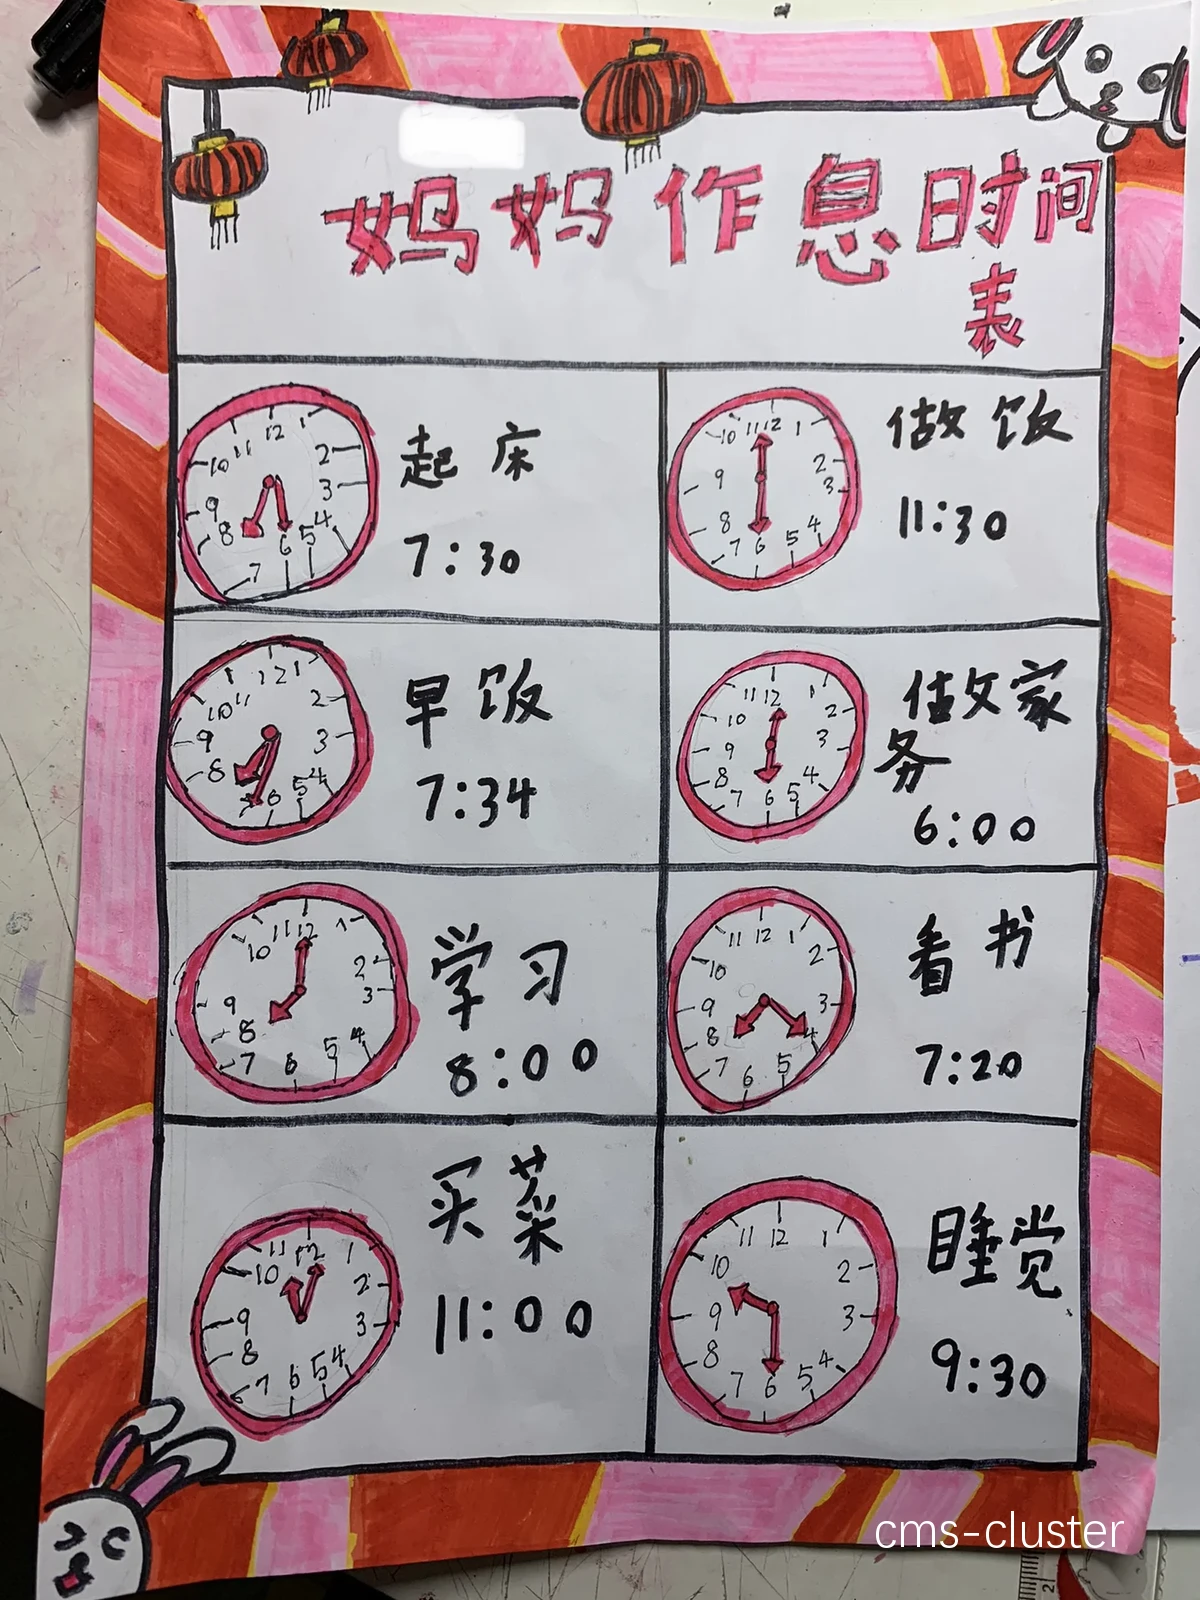 妈妈作息时间
表
起床
7:30
做饭
11:30
早饭
7:34
做家
务
6:00
学习
8:00
看书
7:20
买菜
11:00
睡觉
9:30
12 1 2 3 4 5 6 7 8 9 10 11
12 1 2 3 4 5 6 7 8 9 10 11
12 1 2 3 4 5 6 7 8 9 10 11
12 1 2 3 4 5 6 7 8 9 10 11
12 1 2 3 4 5 6 7 8 9 10 11
12 1 2 3 4 5 6 7 8 9 10 11
12 1 2 3 4 5 6 7 8 9 10 11
12 1 2 3 4 5 6 7 8 9 10 11
cms-cluster